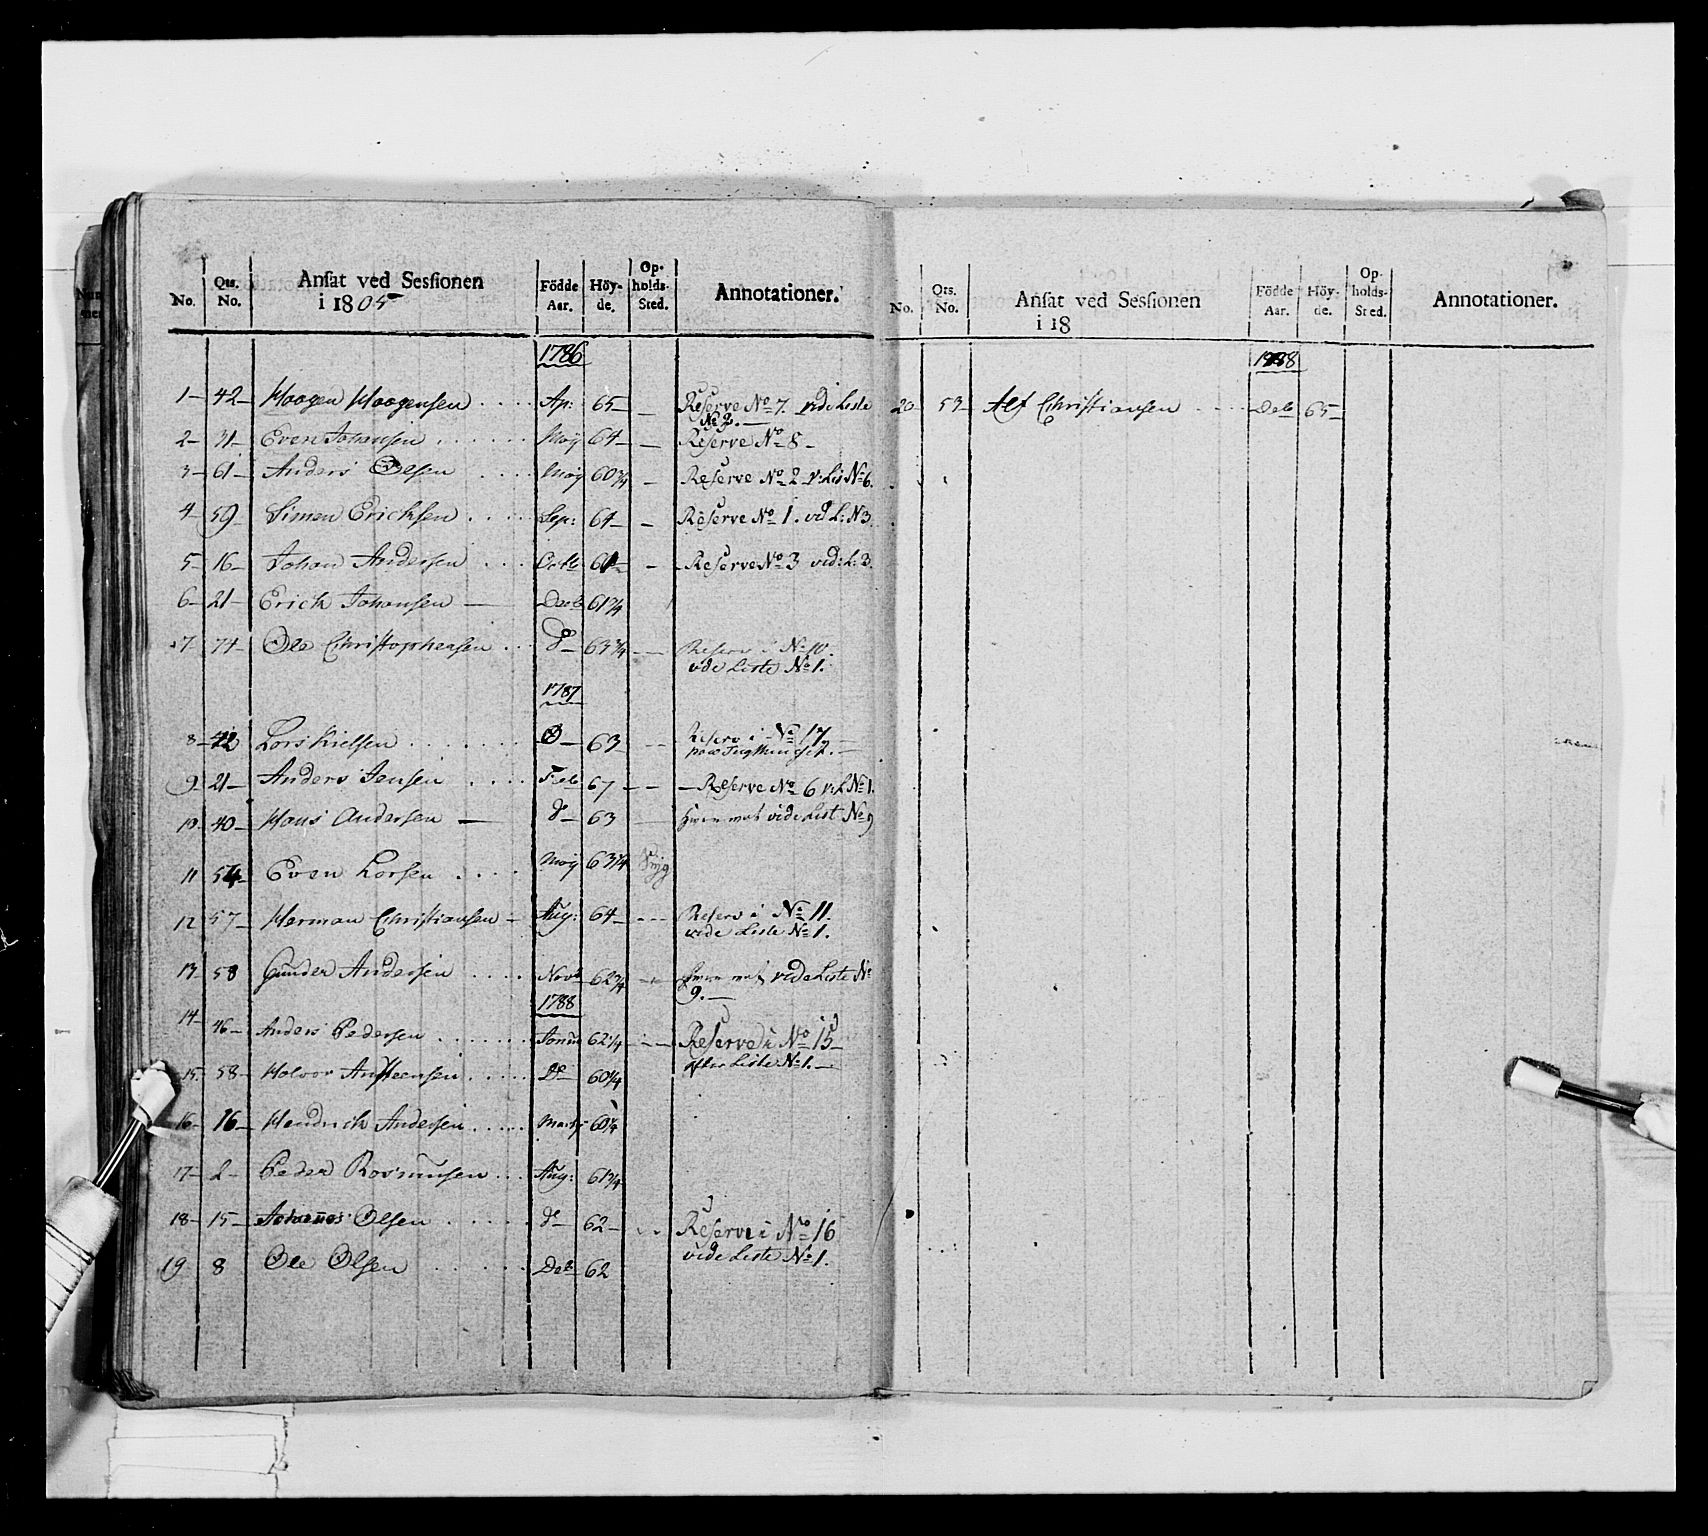 No. Qrs. No. Anſat ved Seſſionen i 1805 Födde Aar. Höyde. Opholds-Sted. Annotationer.
1786
1 42 Haagen Haagensen Ap: 65 Reserve No 7. vide Liste No 2.
2 31 Even Johansen Maÿ 64 Reserve No 8
3 61 Anders Olsen Maÿ 60¾ Reserve No 2 v: Lis No 6.
4 59 Simen Ericksen Sep: 64 Reserve No 1. vid L: N 3.
5 16 Johan Andersen Octb 61 Reserve No 3 vid: L: 3.
6 21 Erich Johansen Decb 61¾
7 74 Ole Christophersen do 63¾ Reserv i No 10.
vide Liste No 1.
1787
8 42 Lars Nielsen 63 Reserv i No 17
9 21 Anders Jensen Feb: 67 Reserve No 6 v: L No 1.
10 40 Hans Andersen do 63 vide List No 9
11 54 Even Larsen Maÿ 63¼
12 57 Herman Christiansen Aug: 64 Reserv i No 11.
vide Liste No 1.
13 58 Gunder Andersen Novb 62¾ vide Liste No
9.
1788
14 46 Anders Pedersen 62¼ Reserve i No 15
efter Liste No 1.
15 58 Halvor do 60¼
16 16 Hendrich Andersen Marty 60¼
17 2 Peder Rasmusen Aug: 61¾
18 15 Johannes Olsen do 62 Reserve i No 16
vide Liste No 1.
19 8 Ole Olsen Deb 62
No. Qrs. No. Anſat ved Seſſionen i 18 Födde Aar. Höyde. Opholds-Sted. Annotationer.
1788
20 53 Alf Christiansen Deb 65